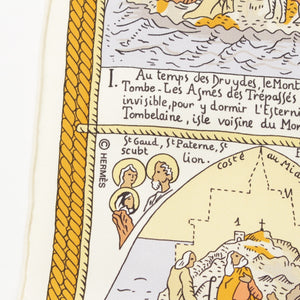 I. Au temps des Druydes, le Mont
Tombe - Les Asmes des Trépassés
invisible, pour y dormir l'Estern
Tombelaine, isle voisine du Mon
St Gaud, St Paterne, St
Scubi
lion.
costé au Mid
© HERMÈS